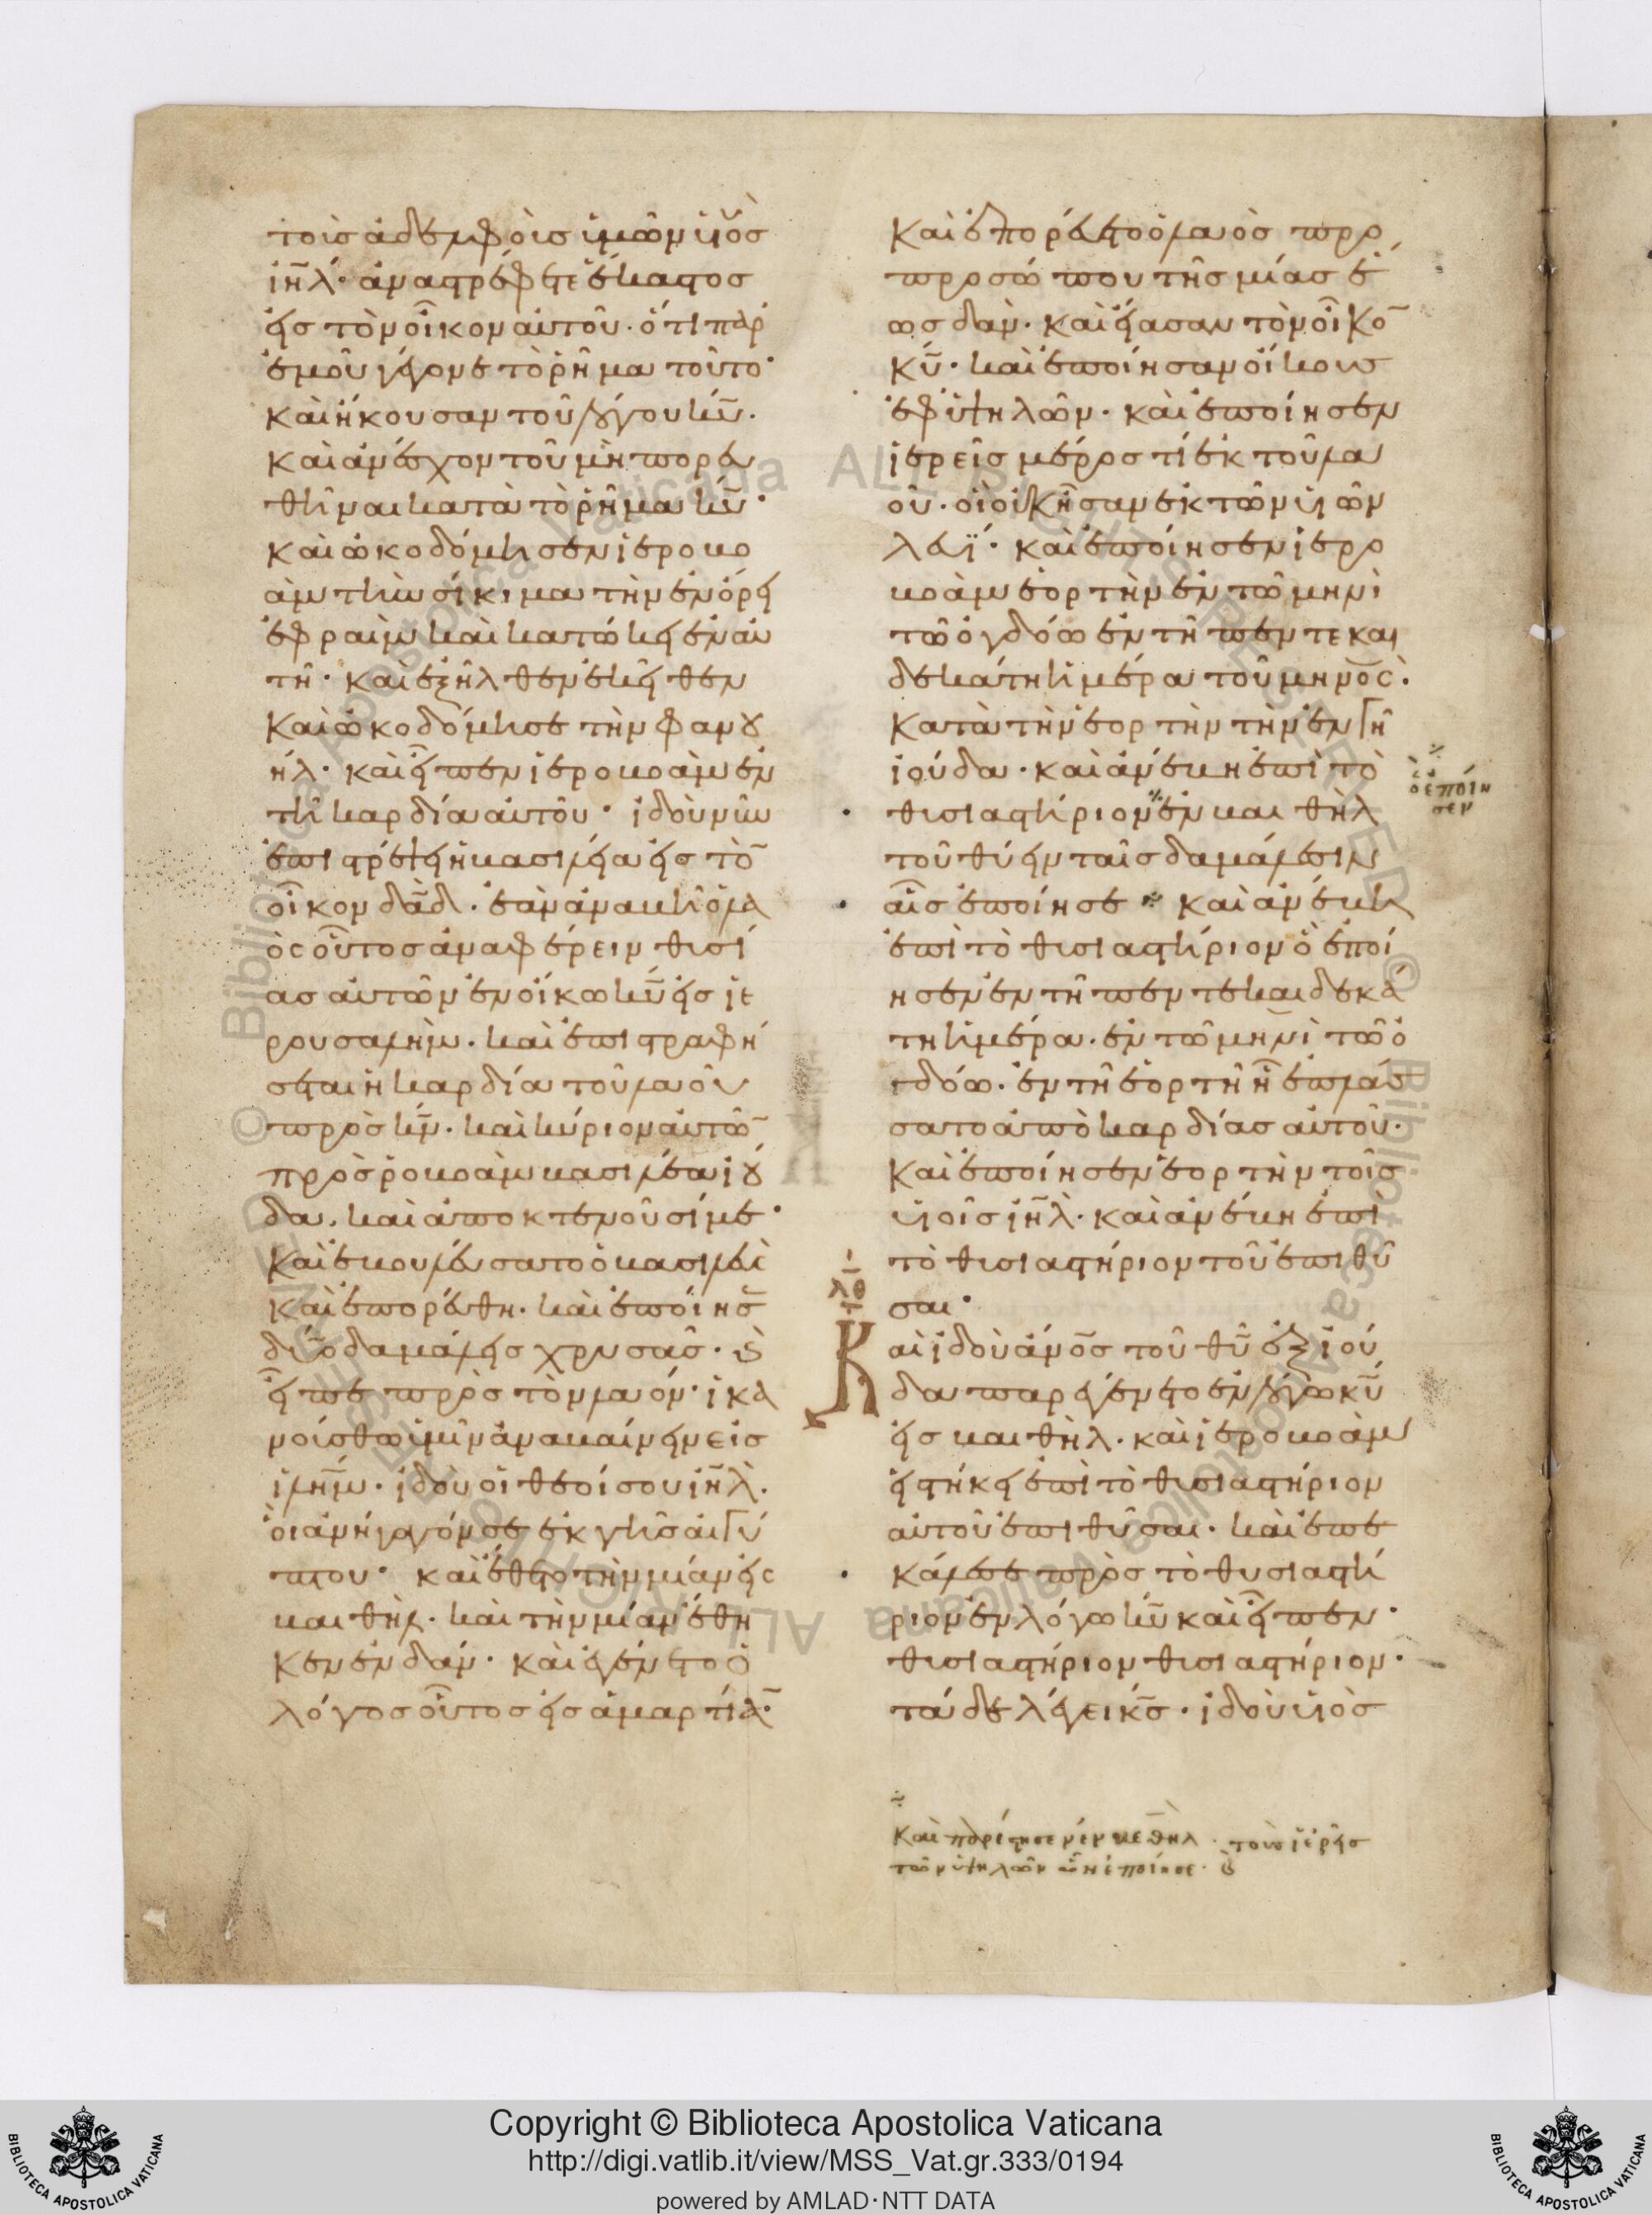 τοῖσ ἀδελφοῖσ ὑμῶν υἱὸσ
ἰη̄λ· ἀναστρέφετε ἕκαστοσ
εἰσ τὸν οἶκον αὐτοῦ· ὅτι παρ
ἐμοῦ γέγονε τὸ ῥῆμα τοῦτο·
καὶ ἤκουσαν τοῦ λόγου κῡ·
καὶ ἀνέσχον τοῦ μὴ πορευ
θῆναι κατὰ τὸ ῥῆμα κῡ·
καὶ ὠκοδόμησεν ἱεροβο
ὰμ τὴν σίκιμα τὴν ἐν ὄρει
ἐφραὶμ καὶ κατώκει ἐν αὐ
τῆ· καὶ ἐξῆλθεν ἐκεῖθεν
καὶ ὠκοδόμησε τὴν φανου
ήλ· καὶ εἶπεν ἱεροβοὰμ ἐν
τῆ καρδία αὐτοῦ· ἰδοὺ νῦν
ἐπιστρέψει ἡ βασιλεία εἰσ τὸ̄
οἶκον δᾱδ· ἐὰν ἀναβῆ ὁ λα
ὸς οὗτοσ ἀναφέρειν θυσί
ασ αὐτῶν ἐν οἴκω κῡ εἰσ ἱε
ρουσαλὴμ· καὶ ἐπιστραφή
σεται ἡ καρδία τοῦ λαοῦ
πρὸσ κν̄· καὶ κύριον αὐτῶ̄
πρὸσ ῥοβοὰμ βασιλέα ἰού
δα· καὶ ἀποκτενοῦσί με·
καὶ ἐβουλεύσατο ὁ βασιλεὺ
καὶ ἐπορεύθη· καὶ ἐποίησ̄
δύο δαμάλεισ χρυσᾶσ· κὶ
εἶπε πρὸσ τὸν λαόν· ἱκα
νούσθω ὑμῖν ἀναβαίνειν εἰσ
ἰλη̄μ· ἰδοὺ οἱ θεοί σου ἰη̄λ·
οἳ ἀνήγαγόν σε ἐκ γῆσ αἰγύ
πτου· καὶ ἔθετο τὴν μίαν εἰς
βαιθήλ· καὶ τὴν μίαν ἔθη
κεν ἐν δάν· καὶ ἐγένετο ὁ
λόγοσ οὗτοσ εἰσ ἁμαρτίᾱ·
καὶ ἐπορεύετο ὁ λαὸσ πρὸ
προσώπου τῆσ μίασ ἕ
ωσ δάν· καὶ εἴασαν τὸν οἶκο̄
κῡ· καὶ ἐποίησαν οἴκουσ
ἐφ ὑψηλῶν· καὶ ἐποίησεν
ἱερεῖσ μέροσ τί ἐκ τοῦ λα
οῦ· οἳ οὐκ ἦσαν ἐκ τῶν υἱῶν
λευΐ· καὶ ἐποίησεν ἱερο
βοὰμ ἑορτὴν ἐν τῶ μηνὶ
τῶ ὀγδόω ἐν τῆ πεντεκαι
δεκάτη ἡμέρα τοῦ μηνὸς·
κατὰ τὴν ἑορτὴν τὴν ἐν γῆ
ἰούδα· καὶ ἀνέβη ἐπὶ τὸ
θυσιαστήριον ἐν βαιθὴλ
τοῦ θύειν ταῖσ δαμάλεσιν
αἷσ ἐποίησε καὶ ἀνέβη
ἐπὶ τὸ θυσιαστήριον ὃ ἐποί
ησεν ἐν τῆ πεντεκαιδεκά
τη ἡμέρα· ἐν τῶ μηνὶ τῶ ὀ
γδόω· ἐν τῆ ἑορτῆ ἧ ἐπλάσ
σατο ἀπὸ καρδίασ αὐτοῦ·
καὶ ἐποίησεν ἑορτὴν τοῖσ
υἱοῖσ ἰη̄λ· καὶ ἀνέβη ἐπὶ
τὸ θυσιαστήριον τοῦ ἐπιθῦ
σαι·
Καὶ ἰδοὺ ἄνο̄σ τοῦ θῡ ἐξ ἰού
δα παρεγένετο ἐν λόγω κῡ
εἰσ βαιθὴλ· καὶ ἱεροβοὰμ
εἱστήκει ἐπὶ τὸ θυσιαστήριον
αὐτοῦ ἐπιθῦσαι· καὶ ἐπε
κάλεσε πρὸσ τὸ θυσιαστή
ριον ἐν λόγω κῡ καὶ εἶπεν·
θυσιαστήριον θυσιαστήριον·
τάδε λέγει κ̄σ· ἰδοὺ υἱὸσ
ὃ ἐποίη
σεν
λθ
καὶ παρέστησεν ἐν βεθὴλ· τοὺσ ἱερεῖσ
τῶν ὑψηλῶν ὧν ἐποίησε· κὶ
Copyright © Biblioteca Apostolica Vaticana
http://digi.vatlib.it/view/MSS_Vat.gr.333/0194
powered by AMLAD·NTT DATA
BIBLIOTECA APOSTOLICA VATICANA
BIBLIOTECA APOSTOLICA VATICANA